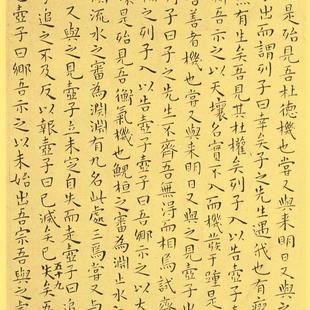 是殆見吾杜德機也嘗又與来明日又與之見
出而謂列子曰幸矣子之先生遇我也有瘳
然有生矣吾見其杜權矣列子入以告壺子
吾示之以天壤名實不入而機發于踵是
善者機也嘗又與来明日又與之見壺
子曰子之先生不齊吾無得而相焉試齊
列子入以告壺子壺子曰吾鄉示之以太
是殆見吾衡氣機也鯢桓之審為淵止水之
流水之審為淵淵有九名此處三焉嘗又與
又與之見壺子立未定自失而走壺子曰追
追之不及反以報壺子曰已滅矣已失矣吾
五十九
壺子曰鄉吾示之以未始出吾宗吾與之